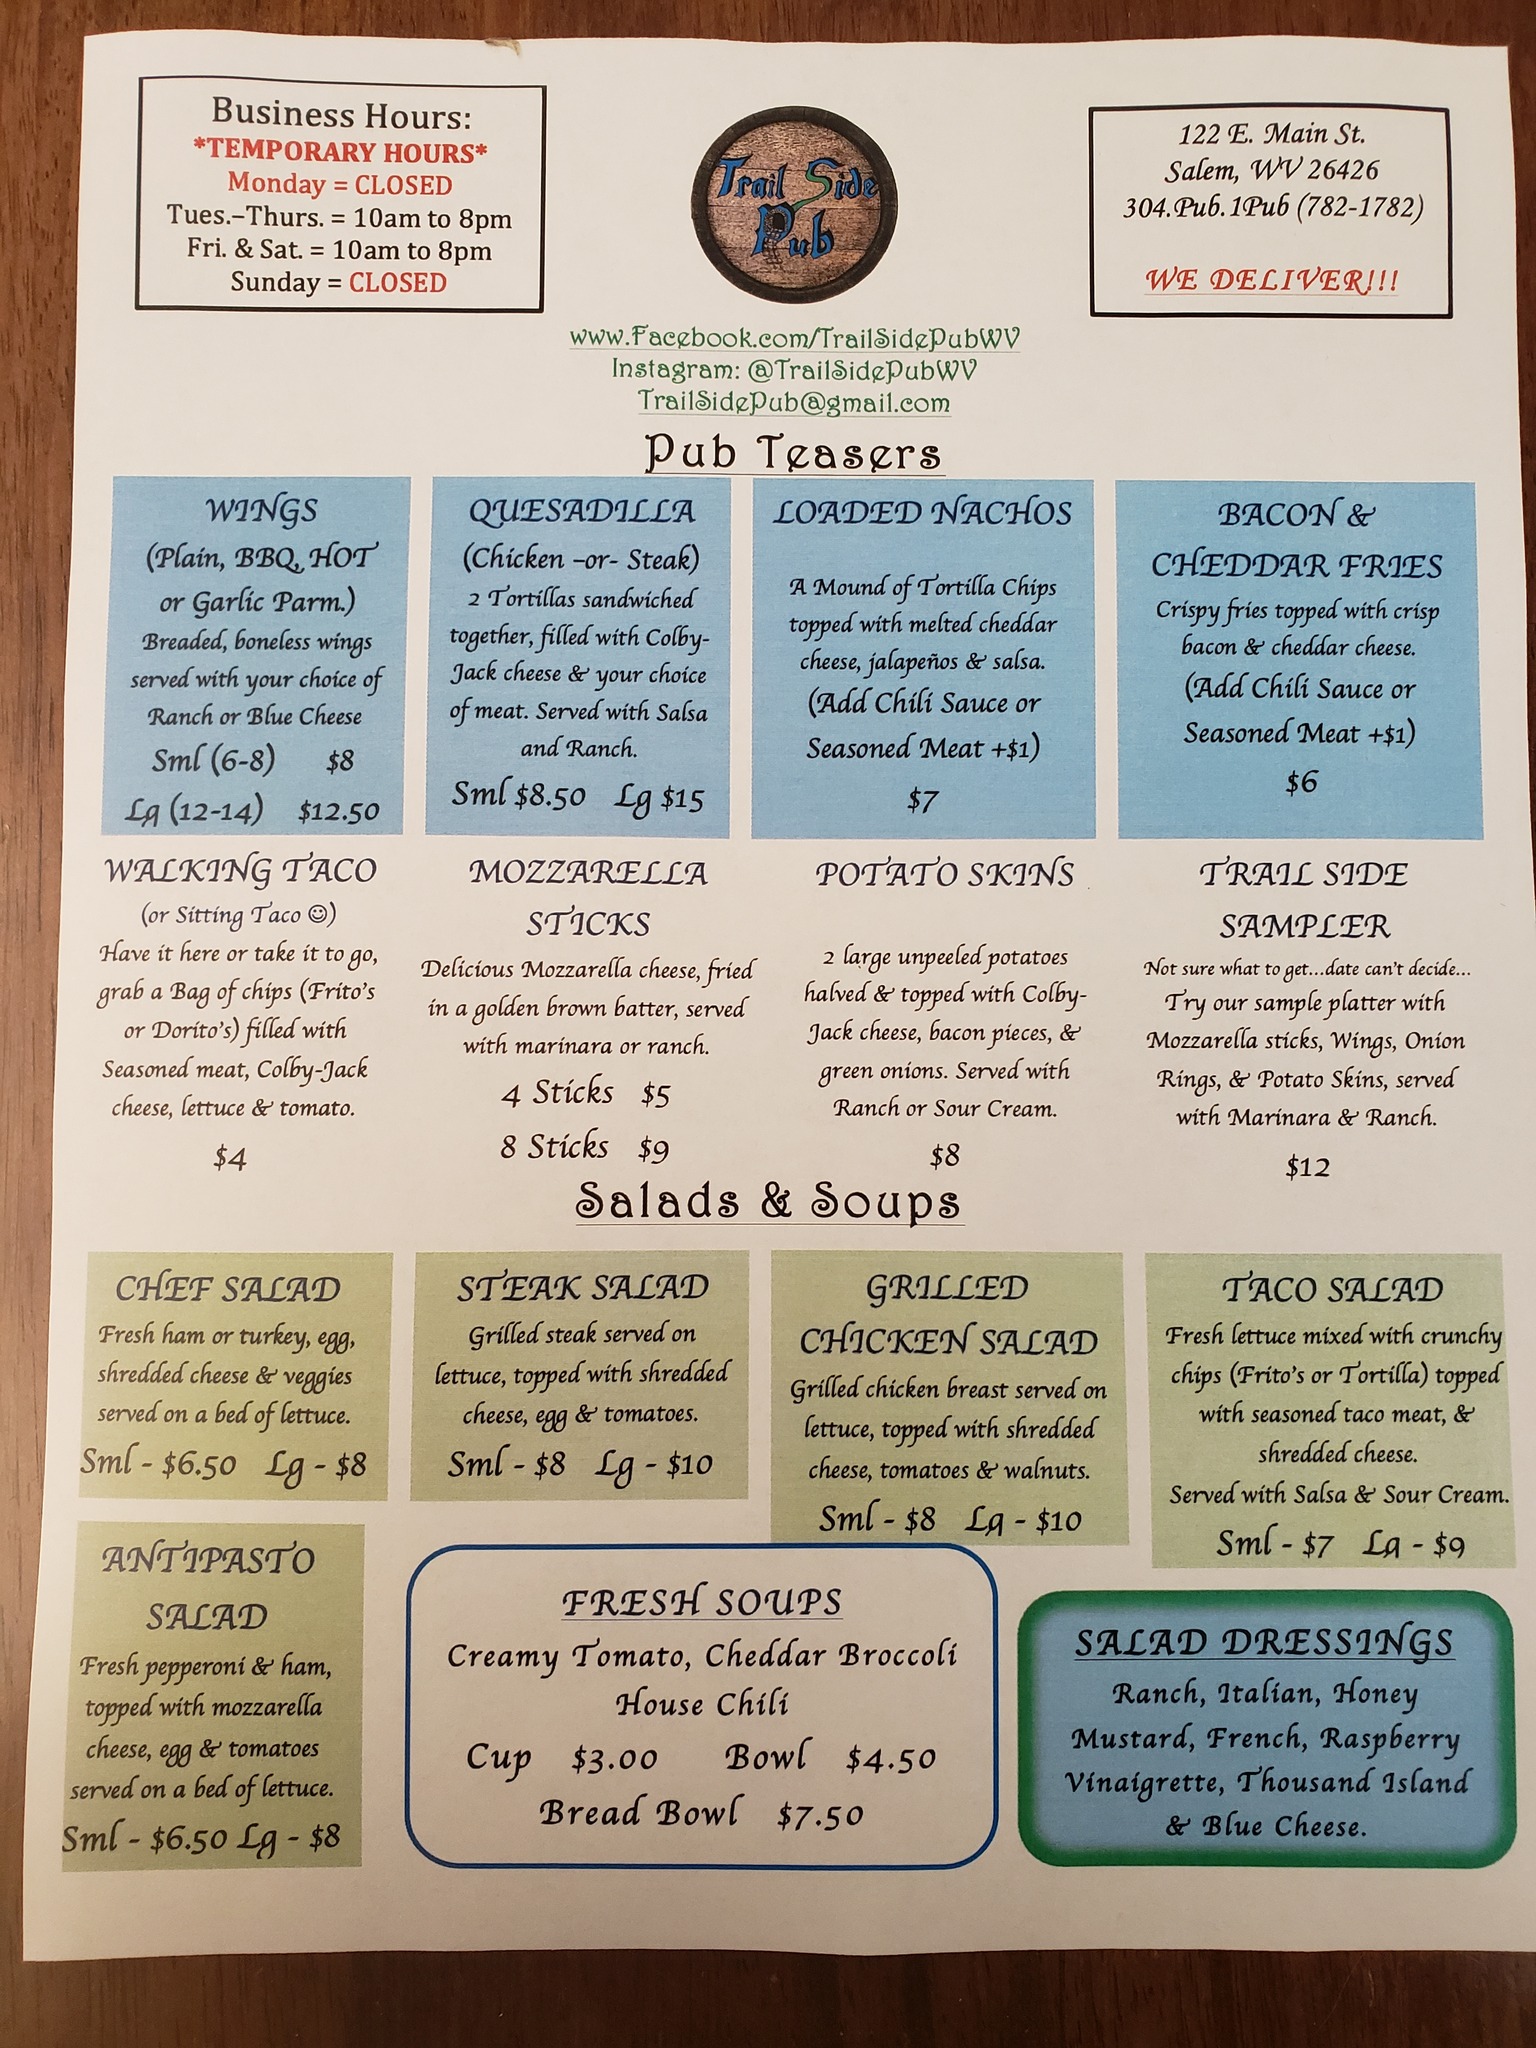 Business Hours:
*TEMPORARY HOURS*
Monday = CLOSED
Tues.–Thurs. = 10am to 8pm
Fri. & Sat. = 10am to 8pm
Sunday = CLOSED
Trail Side
Pub
122 E. Main St.
Salem, WV 26426
304.Pub.1Pub (782-1782)
WE DELIVER!!!
www.Facebook.com/TrailSidePubWV
Instagram: @TrailSidePubWV
TrailSidePub@gmail.com
Pub Teasers
WINGS
(Plain, BBQ, HOT
or Garlic Parm.)
Breaded, boneless wings
served with your choice of
Ranch or Blue Cheese
Sml (6-8) $8
Lg (12-14) $12.50
QUESADILLA
(Chicken –or- Steak)
2 Tortillas sandwiched
together, filled with Colby-
Jack cheese & your choice
of meat. Served with Salsa
and Ranch.
Sml $8.50 Lg $15
LOADED NACHOS
A Mound of Tortilla Chips
topped with melted cheddar
cheese, jalapeños & salsa.
(Add Chili Sauce or
Seasoned Meat +$1)
$7
BACON &
CHEDDAR FRIES
Crispy fries topped with crisp
bacon & cheddar cheese.
(Add Chili Sauce or
Seasoned Meat +$1)
$6
WALKING TACO
(or Sitting Taco ☺)
Have it here or take it to go,
grab a Bag of chips (Frito's
or Dorito's) filled with
Seasoned meat, Colby-Jack
cheese, lettuce & tomato.
$4
MOZZARELLA
STICKS
Delicious Mozzarella cheese, fried
in a golden brown batter, served
with marinara or ranch.
4 Sticks $5
8 Sticks $9
POTATO SKINS
2 large unpeeled potatoes
halved & topped with Colby-
Jack cheese, bacon pieces, &
green onions. Served with
Ranch or Sour Cream.
$8
TRAIL SIDE
SAMPLER
Not sure what to get...date can't decide...
Try our sample platter with
Mozzarella sticks, Wings, Onion
Rings, & Potato Skins, served
with Marinara & Ranch.
$12
Salads & Soups
CHEF SALAD
Fresh ham or turkey, egg,
shredded cheese & veggies
served on a bed of lettuce.
Sml - $6.50 Lg - $8
STEAK SALAD
Grilled steak served on
lettuce, topped with shredded
cheese, egg & tomatoes.
Sml - $8 Lg - $10
GRILLED
CHICKEN SALAD
Grilled chicken breast served on
lettuce, topped with shredded
cheese, tomatoes & walnuts.
Sml - $8 Lg - $10
TACO SALAD
Fresh lettuce mixed with crunchy
chips (Frito's or Tortilla) topped
with seasoned taco meat, &
shredded cheese.
Served with Salsa & Sour Cream.
Sml - $7 Lg - $9
ANTIPASTO
SALAD
Fresh pepperoni & ham,
topped with mozzarella
cheese, egg & tomatoes
served on a bed of lettuce.
Sml - $6.50 Lg - $8
FRESH SOUPS
Creamy Tomato, Cheddar Broccoli
House Chili
Cup $3.00 Bowl $4.50
Bread Bowl $7.50
SALAD DRESSINGS
Ranch, Italian, Honey
Mustard, French, Raspberry
Vinaigrette, Thousand Island
& Blue Cheese.